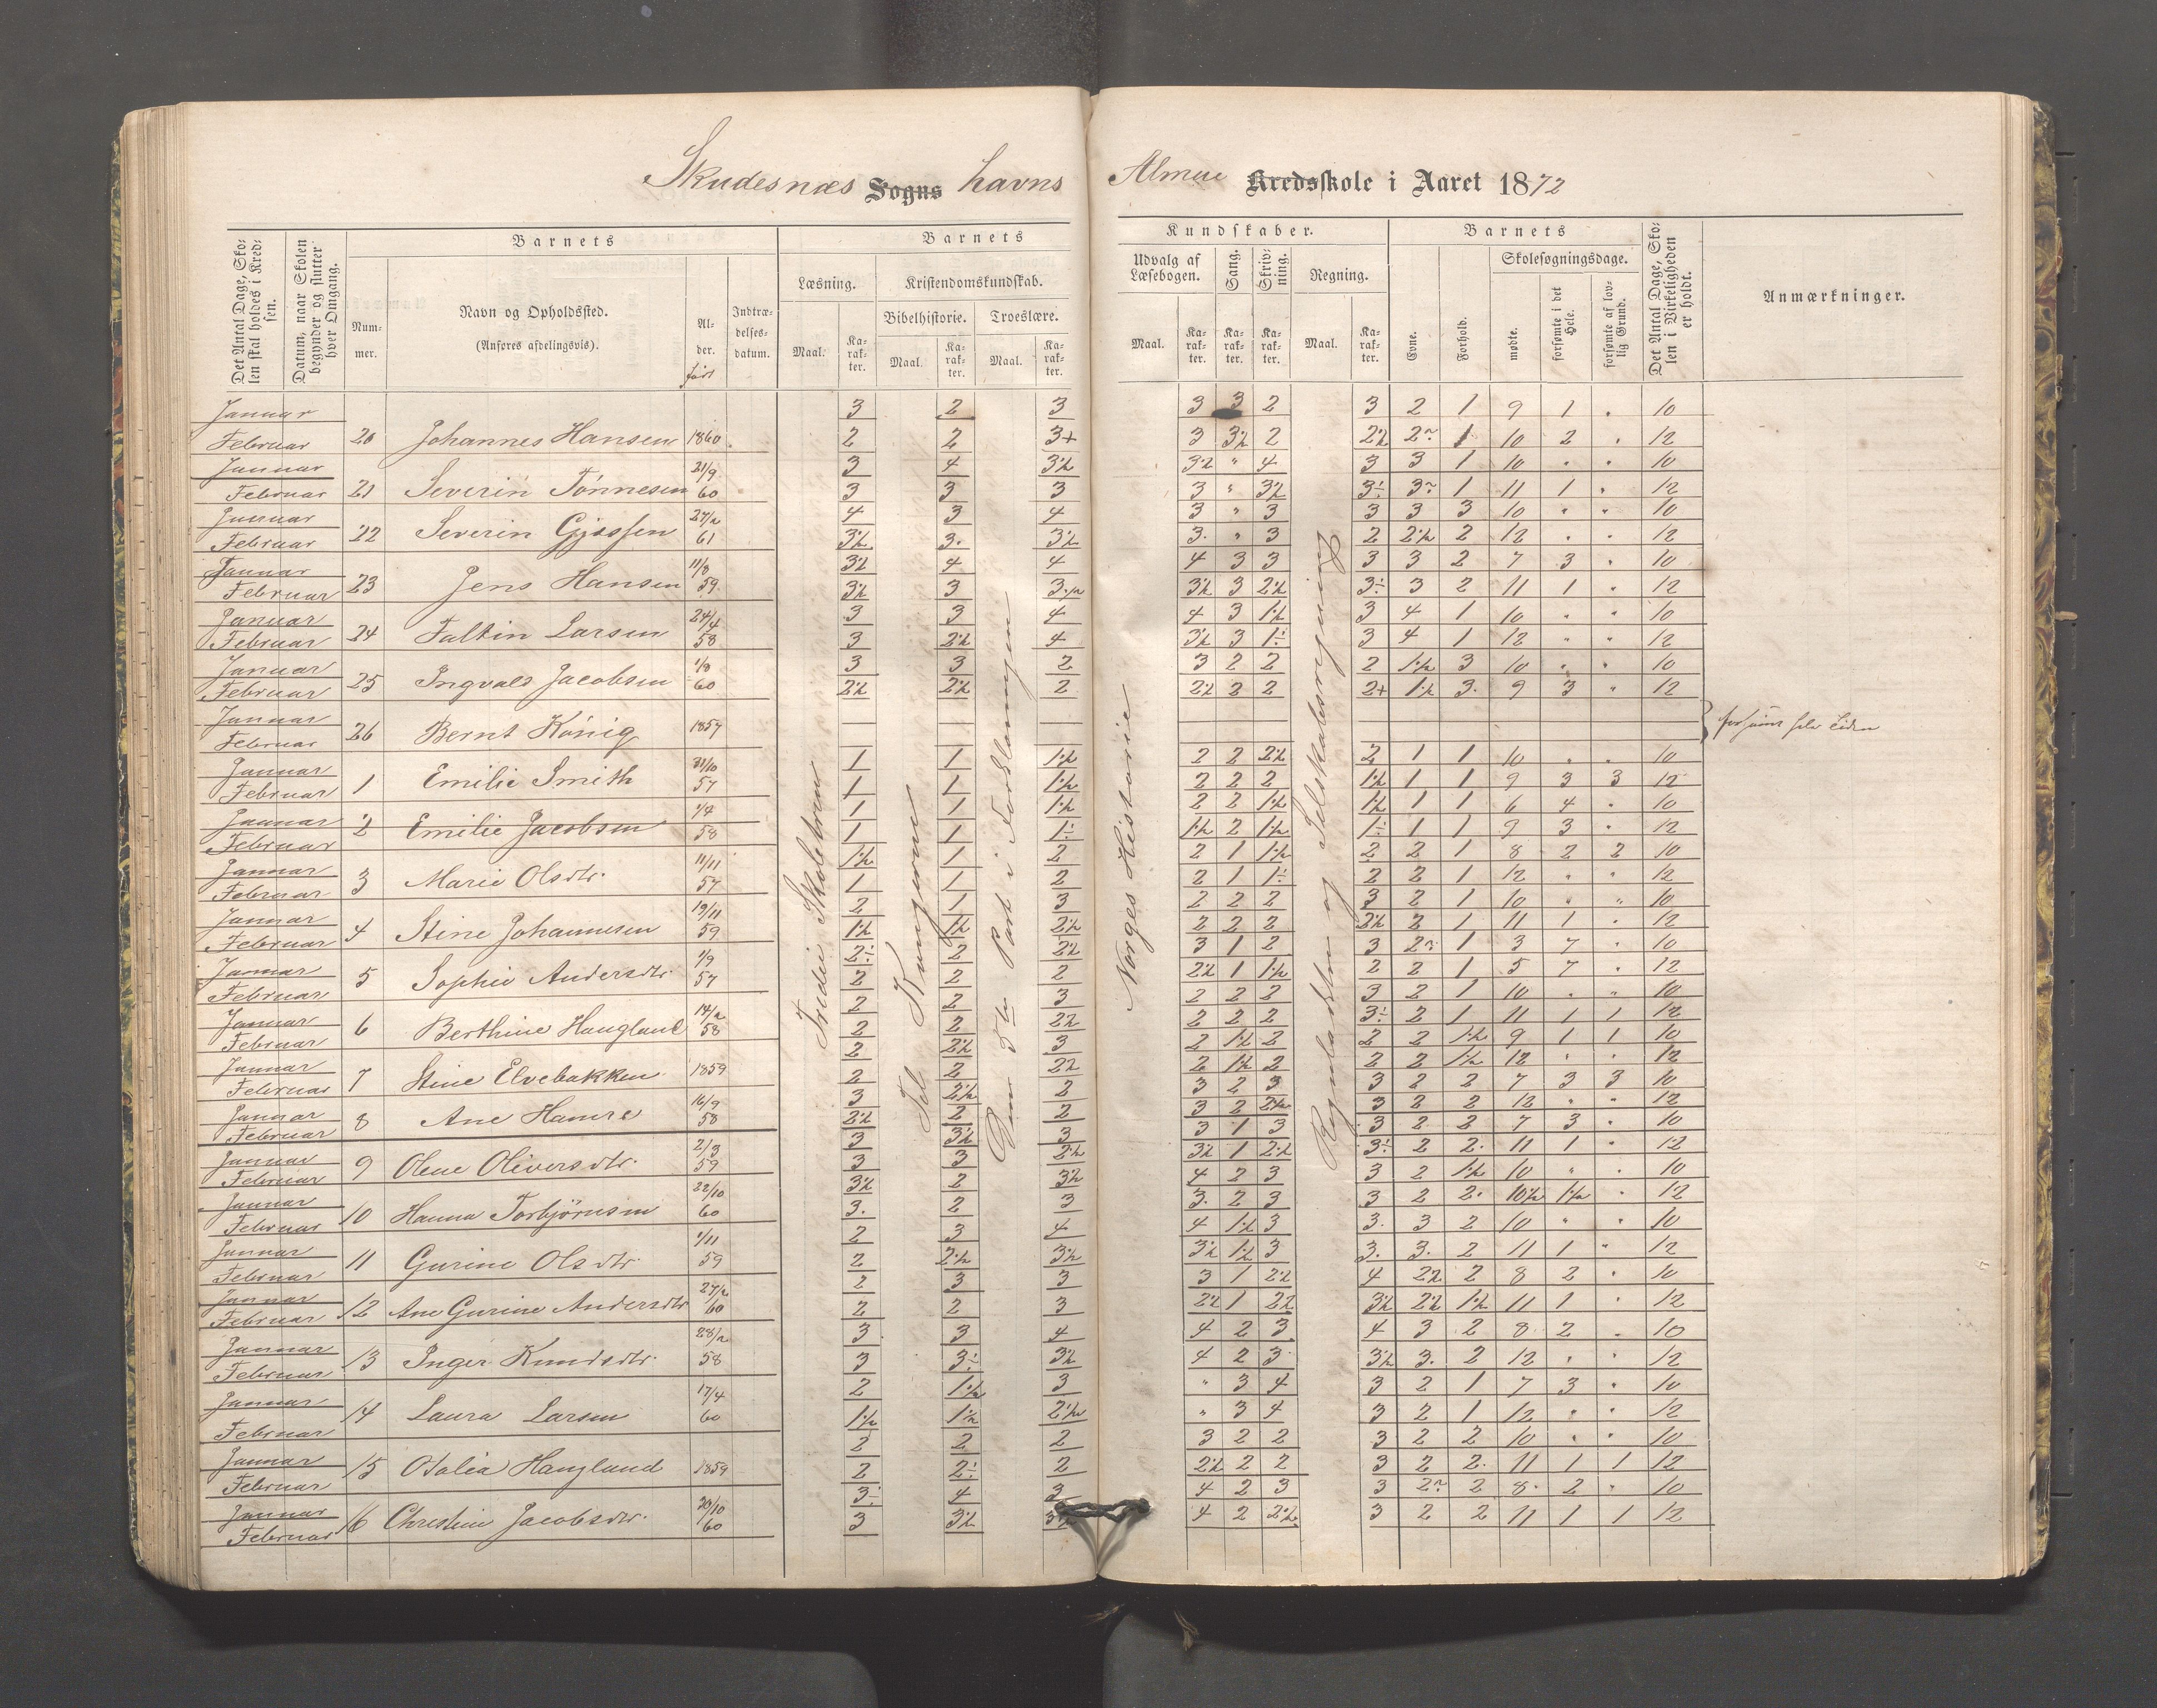 Skudesnæs Sogns havns
Almue Kredsskole i Aaret 1872
Det Antal Dage, Skolen skal holdes i Kredsen.
Datum, naar Skolen begynder og slutter hver Omgang.
Barnets
Nummer.
Navn og Opholdssted.
(Anføres afdelingsvis).
Alder.
født
Indtrædelsesdatum.
Barnets
Læsning.
Kristendomskundskab.
Bibelhistorie.
Troeslære.
Maal.
Karakter.
Maal.
Karakter.
Maal.
Karakter.
Kundskaber.
Udvalg af Læsebogen.
Sang.
Skrivning.
Regning.
Maal.
Karakter.
Karakter.
Karakter.
Maal.
Karakter.
Barnets
Evne.
Forhold.
Skolesøgningsdage.
mødte.
forsømte i det Hele.
forsømte af lovlig Grund.
Det Antal Dage, Skolen i Virkeligheden er holdt.
Anmærkninger.
Januar 3 2 3 3 3 2 3 2 1 9 1 . 10
Februar 20 Johannes Hansen 1860 2 2 3+ 3 3½ 2 2½ 2 1 10 2 . 12
Januar 21/9 3 4 3½ 3½ " 4 3 3 1 10 " " 10
Februar 21 Severin Tönnesen 60 3 3 3 3 " 3½ 3 1 11 1 . 12
Januar 4 3 4 3 " 3 3 3 3 10 " " 10
Februar 22 Severin Gjissen 61 3½ 3. 3½ 3. " 3 2 2½ 2 12 . . 12
Januar 11/8 3½ 4 4 4 3 3 3 3 2 7 3 . 10
Februar 23 Jens Hansen 59 3½ 3 3½ 3½ 3 2½ 3 2 11 1 " 12
Januar 24/4 3 3 4 4 3 1½ 3 4 1 10 " " 10
Februar 24 Faltin Larsen 58 3 2½ 4 3½ 3 3 4 1 12 " " 12
Januar 1/8 3 3 2 3 2 2 2 1½ 3 10 . . 10
Februar 25 Ingvald Jacobsen 60 2½ 2½ 2 2½ 2 2 2+ 1½ 3. 9 3 " 12
Januar
Februar 26 Bernt König 1857
Januar 31/10 1 1 1½ 2 2 2½ 2 1 1 10 . . 10
Februar 1 Emilie Smith 57 1 1 1½ 2 2 2 1½ 1 1 9 3 3 12
Januar 1/4 1 1 1½ 2 2 1½ 1½ 1 1 6 4 . 10
Februar 2 Emilie Jacobsen 58 1 1 1½ 2 1½ 1 1 9 3 . 12
Januar 11/11 1½ 1 2 2 1 1½ 2 2 1 8 2 2 10
Februar 3 Marie Olsdtr. 57 1 1 2 2 1 2 2 1 12 " " 12
Januar 19/11 2 1 3 2 2 2 3 2 1 10 " " 10
Februar 4 Stine Johannesen 59 1½ 1½ 2½ 2 2 2 2½ 2 1 11 1 . 12
Januar 1/9 2 2½ 3 1 2 3 1 3 7 . 10
Februar 5 Sophie Andersdtr. 57 2 2 2 2½ 1 1½ 2 2 1 5 7 . 12
Januar 2 2 3 2 2 2 3 2 1 10 . " 10
Februar 6 Berthine Haugland 58 2 2 2½ 2 2 2 2 1 11 1 1 12
Januar 2 2½ 3 2 1½ 2 2 2 1½ 9 1 1 10
Februar 7 Stine Elvebakken 1859 2 2 2½ 2 1½ 2 2 2 1½ 12 . . 12
Januar 16/9 3 2½ 2 3 2 3 3 2 2 7 3 3 10
Februar 8 Ane Hamre 58 2½ 2 2 3 2 2½ 3 2 2 12 " " 12
Januar 2/3 3 3½ 3 3 1 3 3 2 2 7 3 . 10
Februar 9 Olene Oliversdtr. 59 3 3 2½ 3½ 1 2½ 2 2. 11 1 . 12
Januar 22/10 3½ 2 3½ 4 2 3 3 2 1½ 10 " . 10
Februar 10 Hanna Torbjörnsen 60 3. 2 3 3. 2 3 3 2 2. 10½ 1½ . 12
Januar 1/11 2 3 4 4 1½ 3 3. 3 2 10 " " 10
Februar 11 Gurine Olsdtr. 59 2 2½ 3½ 3½ 1½ 3 3. 3. 2 11 1 " 12
Januar 2 3 3 3 1 2½ 4 2½ 2 8 2 . 10
Februar 12 Ane Gurine Andersdtr 60 2 2 3 2½ 1 2½ 3½ 2½ 1½ 11 1 . 12
Januar 3 3 4 4 2 3 4 3 2 8 2 . 10
Februar 13 Inger Knudsdtr. 58 3 3½ 4 2 3 3½ 3. 2 12 . . 12
Januar 17/4 2 1½ 3 " 3 4 3 2 1 7 3 . 10
Februar 14 Laura Larsen 60 1½ 1½ 2½ " 3 4 3 2 1 12 . . 12
Januar 2 2 2 3 2 2 3 2 2 10 . . 10
Februar 15 Otalia Haugland 1859 2 2 2½ 2 2 3 2 2. 11 1 1 12
Januar 20/10 4 3 4 2 3 3 2 8. 2 . 10
Februar 16 Christine Jacobsdtr. 60 3 3½ 4 2 2½ 3 2 2 11 1 1 12
Tredie Skolebrev
Til Kungerne
Den 3die Part i Forklaringen
Norges Historie
Reguladetri og Selskabsregning
forsömt hele Tiden